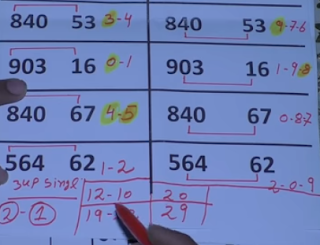 840 53 3-4 840 53 9-7-6
903 16 0-1 903 16 1-9-8
840 67 4-5 840 67 0-8-7
564 62 1-2 564 62 2-0-9
3up single 12-10 20
2-1 19- 29